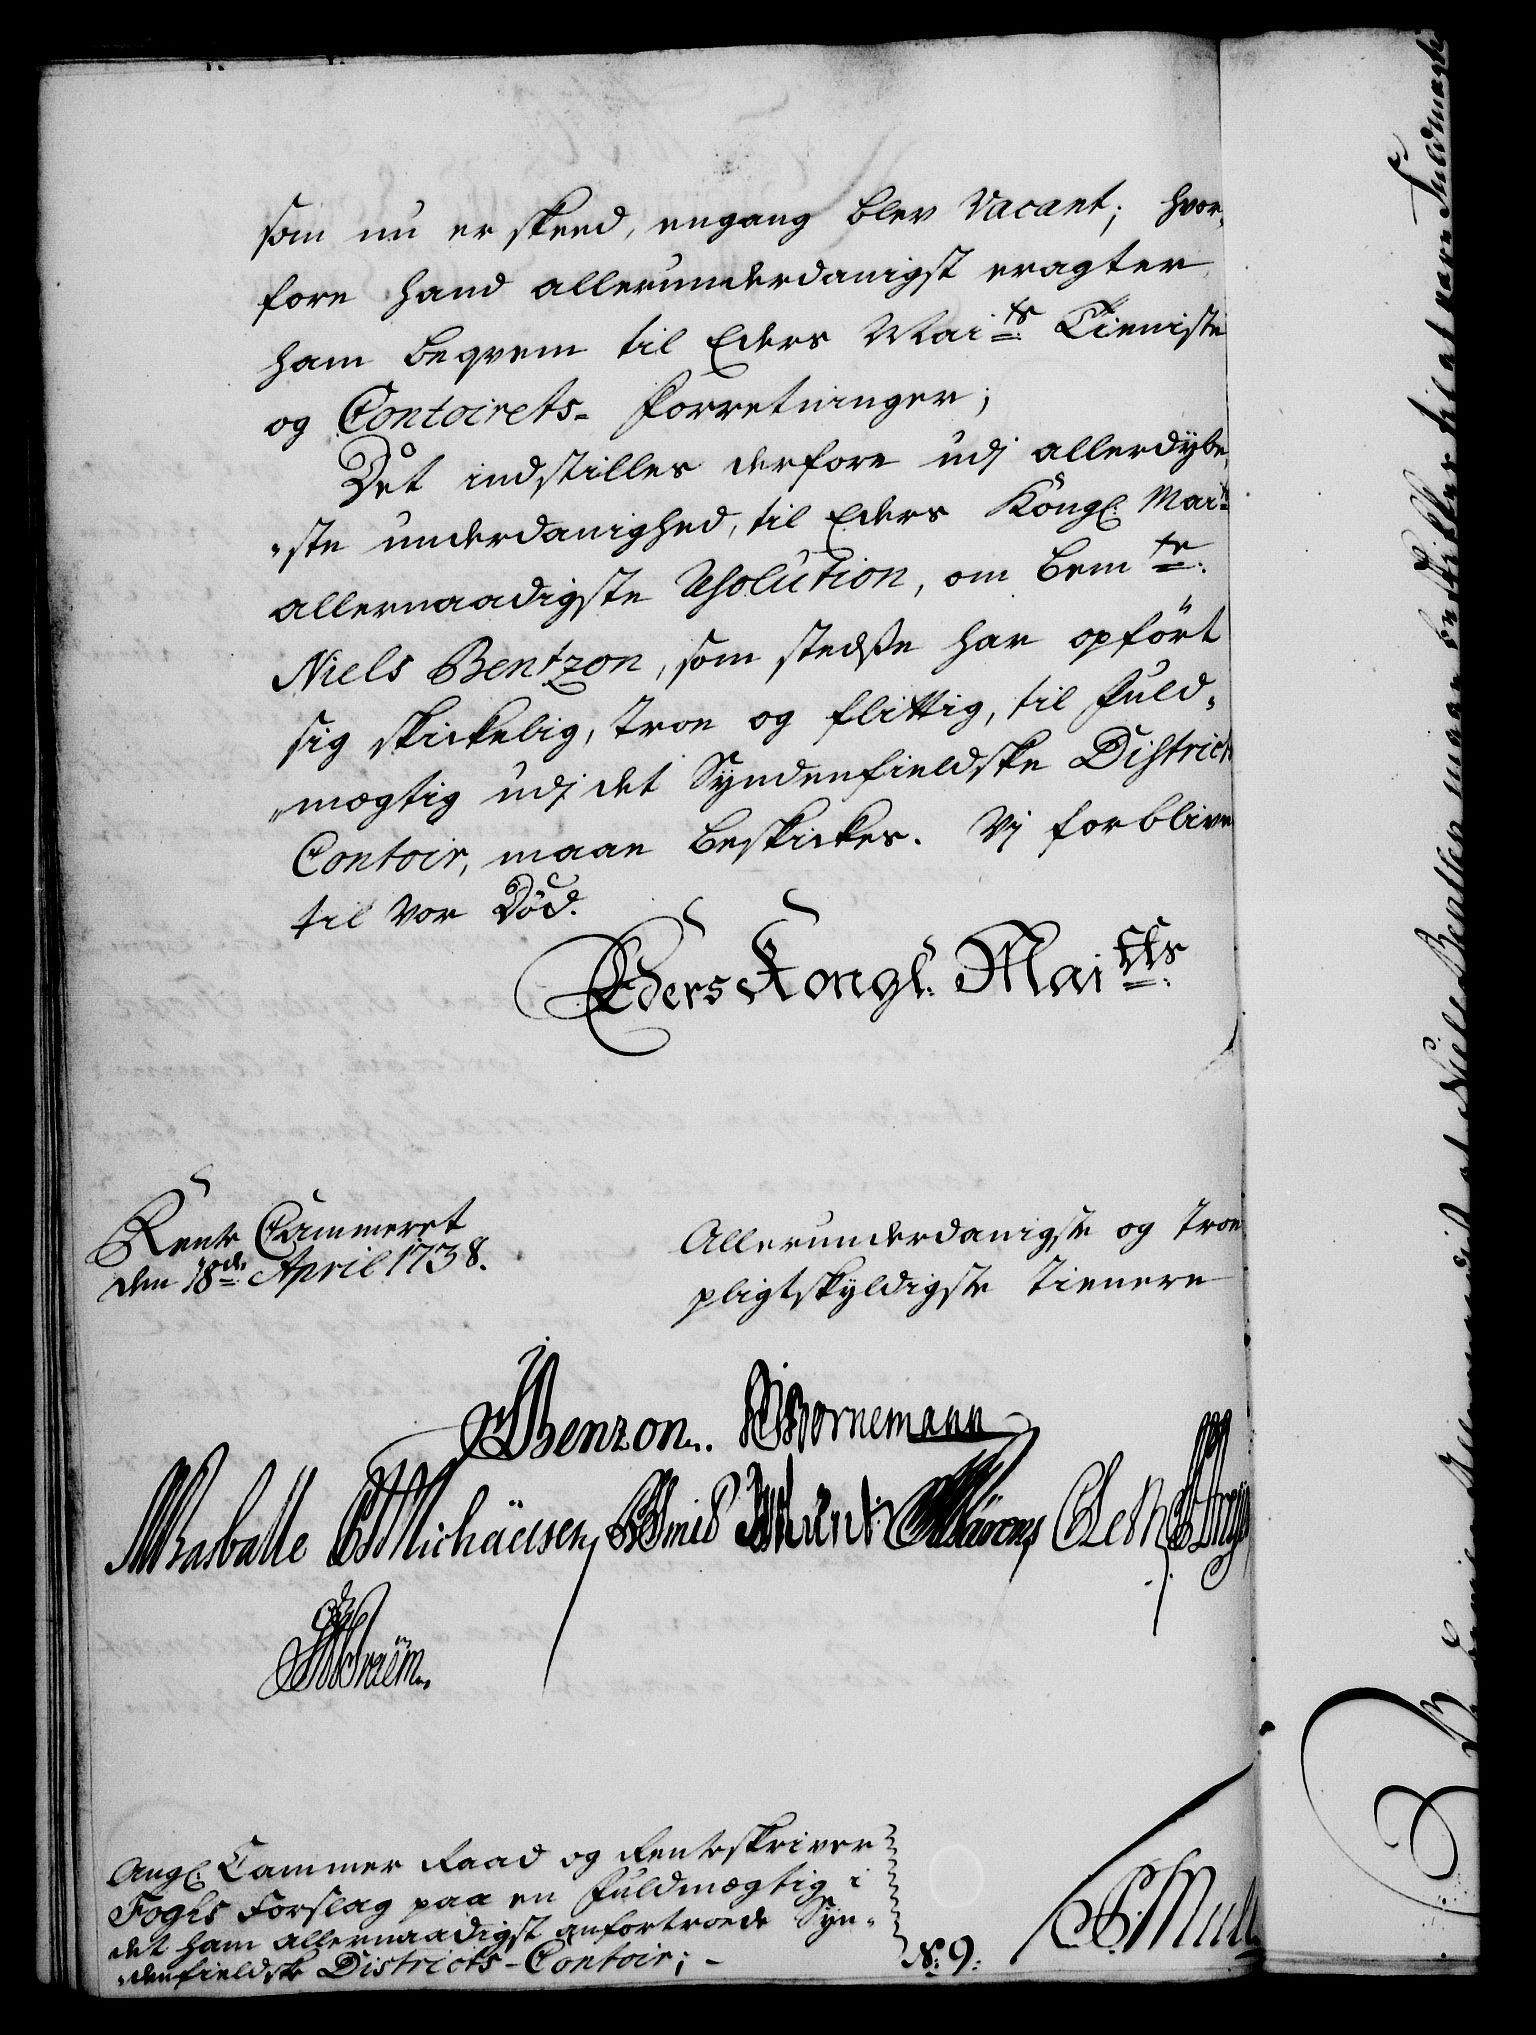 som nu er skeed, engang blev Vacant; hvor-
fore hand allerunderdanigst eragter
ham beqvem til Eders Mai<sup>ts</sup> Tieniste
og Contoirets- Forretninger;
Det indstilles derfore udj allerdybe-
"ste underdanighed, til Eders Kongl. Mai<sup>ts</sup>
allernaadigste Resolution, om bem<sup>te</sup>
Niels Bentzon, som stedse har opført
sig skickelig, troe og flittig, til Fuld-
"mægtig udj det Syndenfieldske District
Contoir, maae beskickes. Vj forblive
til vor Död.
Eders Kongl. Mai<sup>tts</sup>
Rente Cammeret
den 18<sup>de</sup> April 1738.
Allerunderdanigste og troe
pligtskyldigste Tienere
Benzon. Bornemann
Basballe Michäelsen Smid Munk
Angl. Cammer Raad og Renteskriver
Foghs Forslag paa en Fuldmægtig i
det ham allernaadigst anfortroede Syn-
"denfieldske Districts-Contoir; -
N: 9:
Niels Bentzen maae bestilles til at være Fuldmægtig